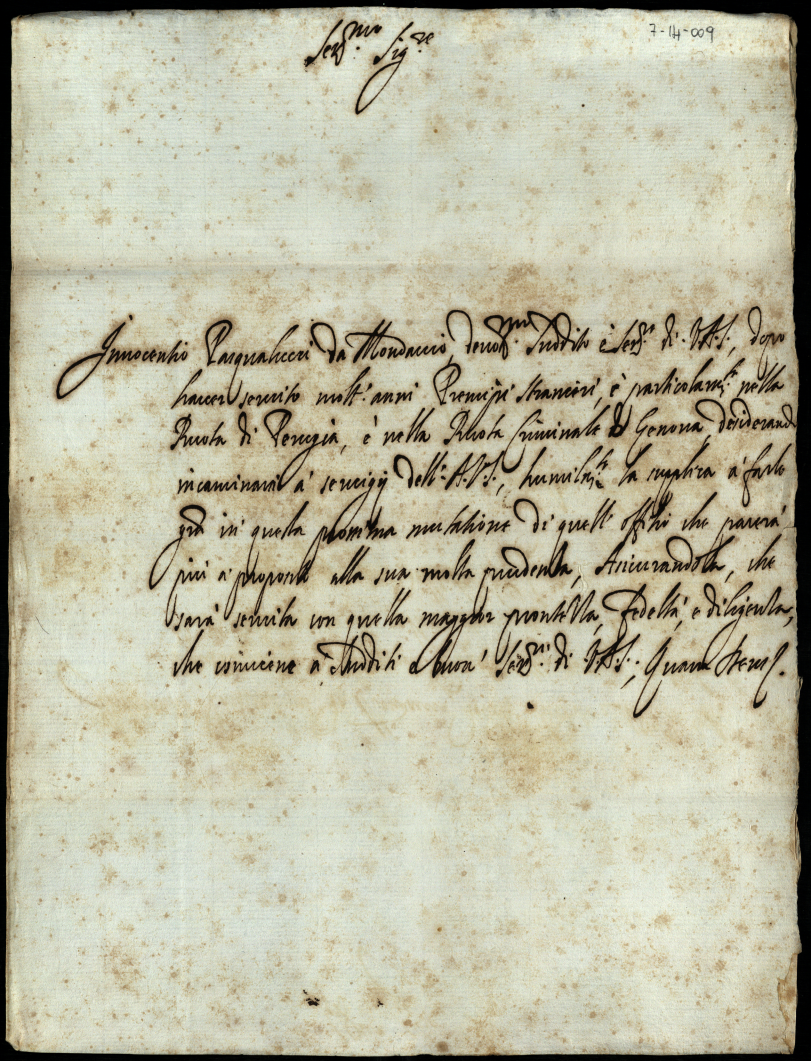 7-14-009
Ser.mo Sig.re
Innocentio Pasqualucci da Mondavio, deuot.mo Suddito è Ser.re di V.A.S., dopo
hauer seruito molt'anni Prencipi stranieri, è particolarm.te nella
Ruota di Perugia, è nella Ruota Criminale di Genoua, desiderando
incaminarsi a' seruigij dell'A.V.S., humilm.te la supplica a' farlo
gra in questa prossima mutatione di quell'offitio che parera'
più a' proposito alla sua molta prudenza, Assicurandola, che
sara' seruita con quella maggior prontezza, Fedelta', e diligenza,
che conuiene a' Sudditi e buon' Ser.ri di V.A.S., Quam Deus